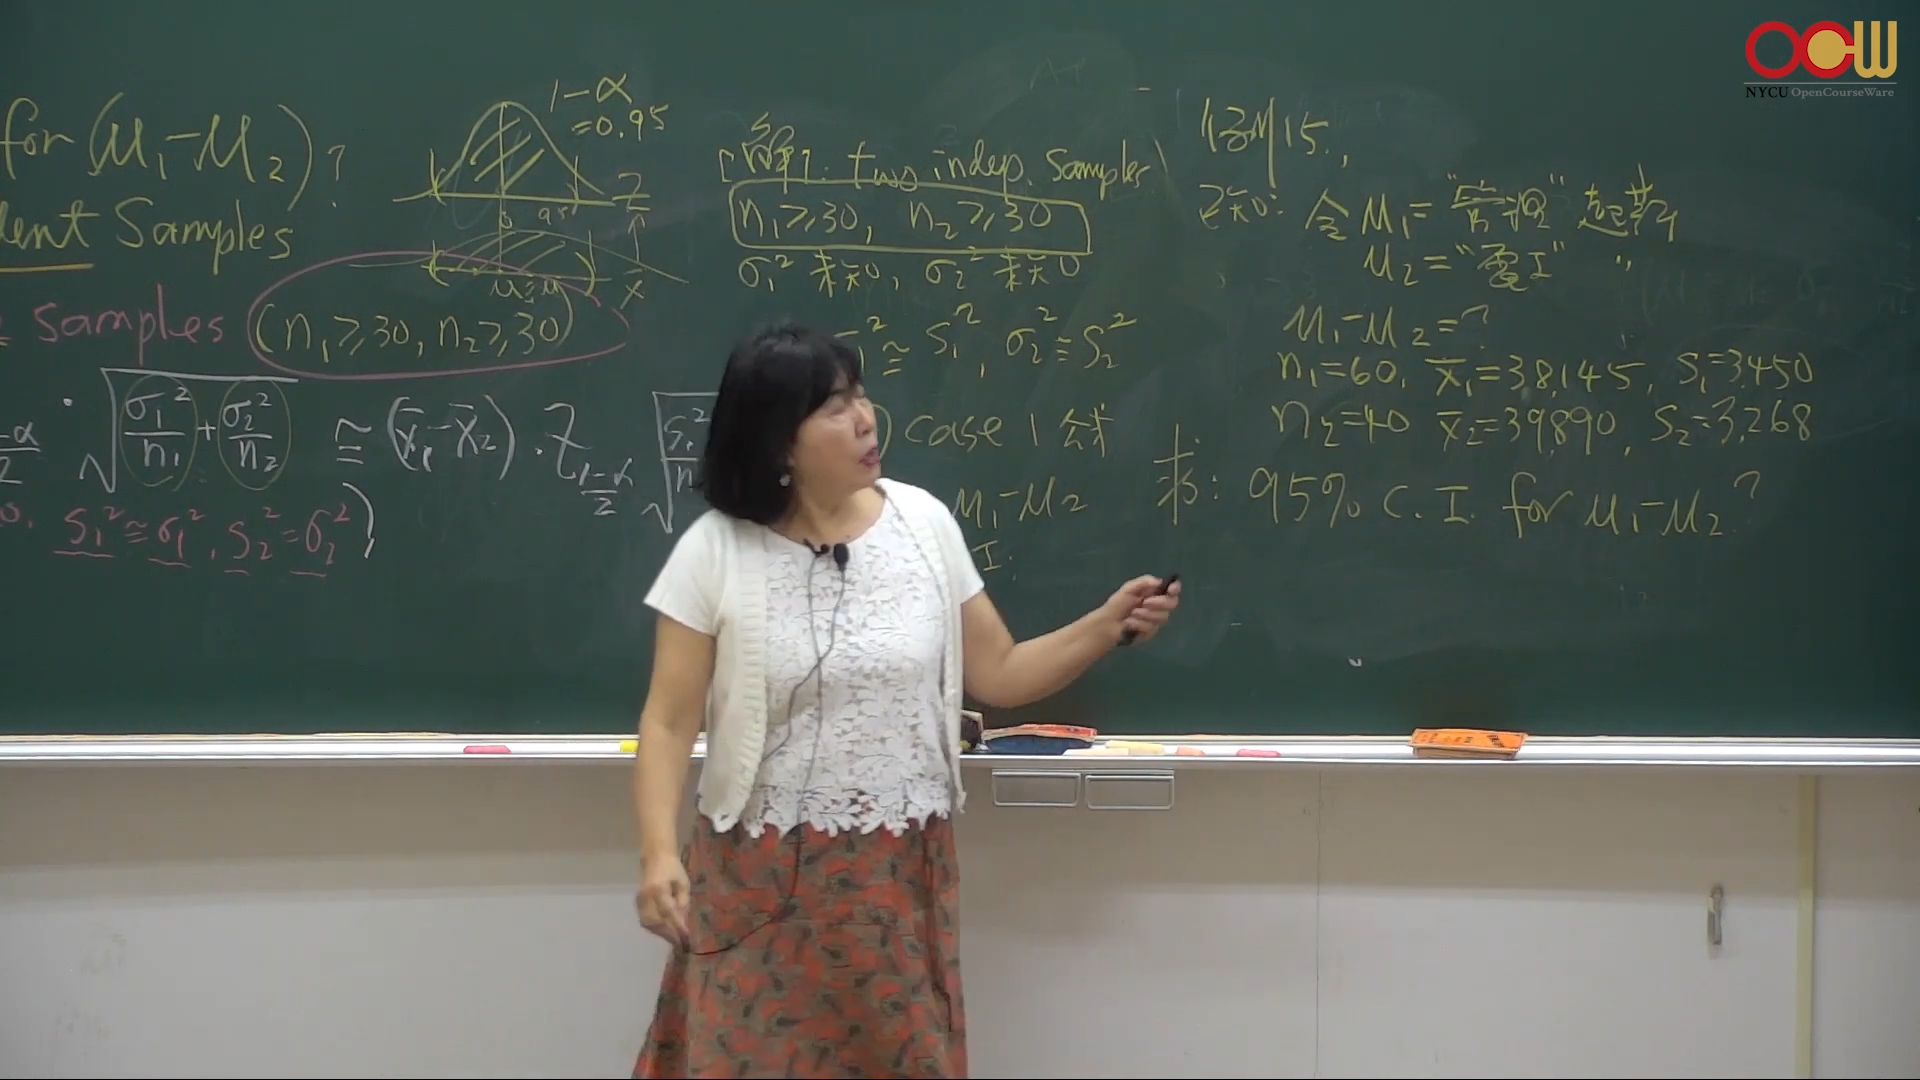 OCW
NYCU OpenCourseWare
for (μ₁-μ₂)?
dent Samples
samples (n₁≥30, n₂≥30)
√(σ₁²/n₁ + σ₂²/n₂) ≅ (x̄₁-x̄₂) · Z 1-α/2 √ s₁²/n
s₁²≅σ₁², s₂²=σ₂²)
1-α
=0.95
0
Z
x̄
[解]: two indep. Samples
n₁≥30, n₂≥30
σ₁² 未知, σ₂² 未知
² ≅ s₁², σ₂² ≡ s₂²
case 1 公式
μ₁-μ₂
I.
例15.
已知: 令 μ₁= "管理" 起薪
μ₂= "電工" "
μ₁-μ₂=?
n₁=60, x̄₁=38,145, s₁=3,450
n₂=40 x̄₂=39,890, s₂=3,268
求: 95% C.I. for μ₁-μ₂?